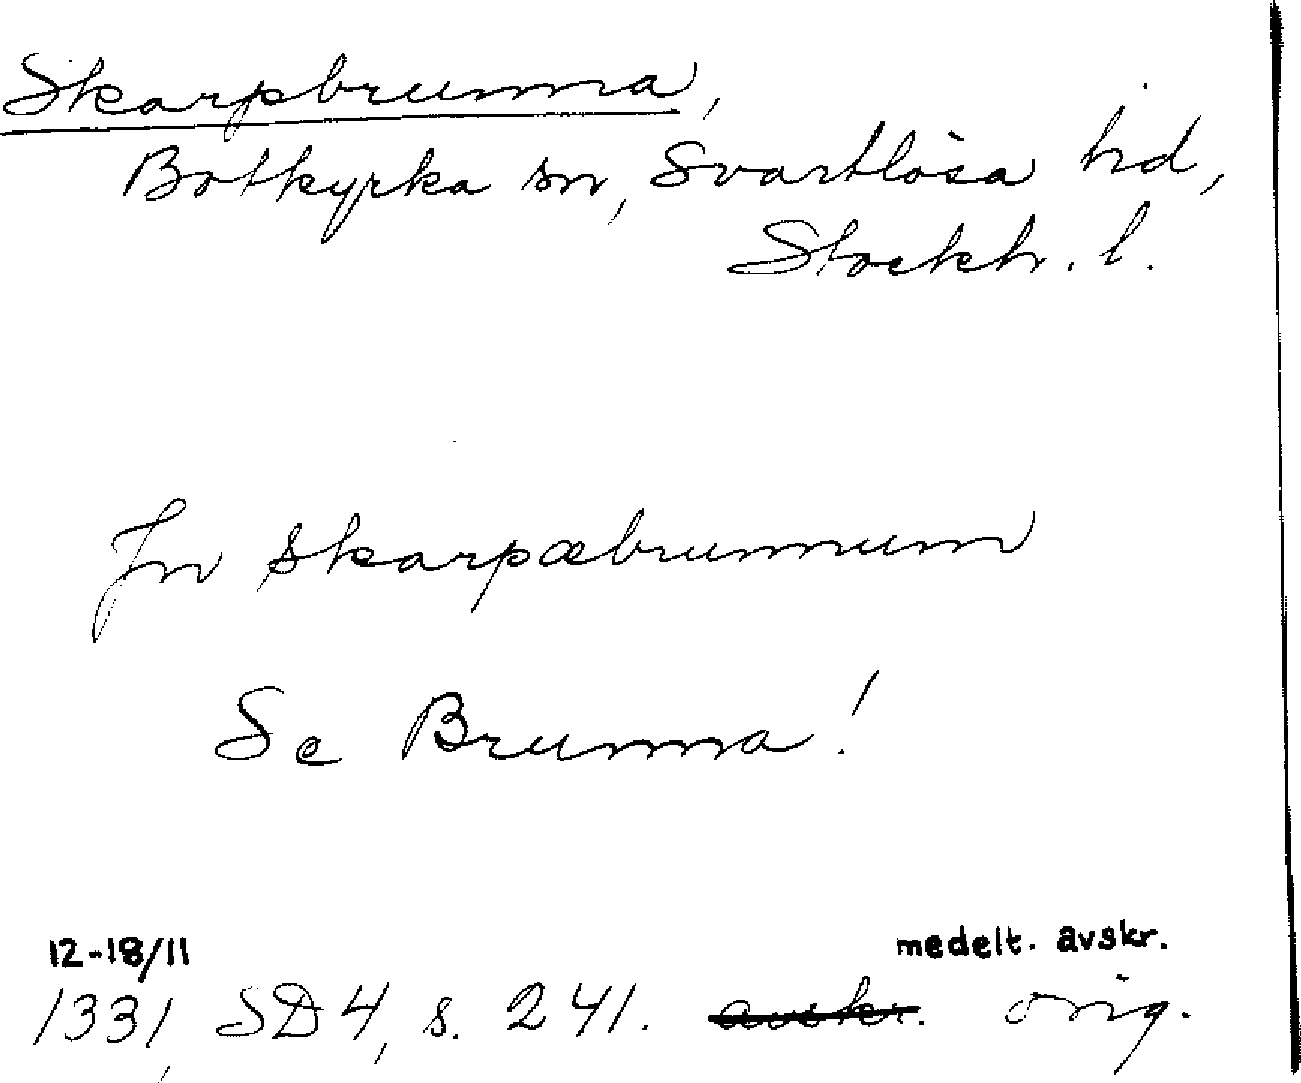 Skarpbrunna,
Botkyrka sn, Svartlösa hd,
Stockh. l.
Jn skarpæbrunnum
Se Brunna!
12-18/11 medelt. avskr.
1331, SD 4, s. 241. avskr. orig.